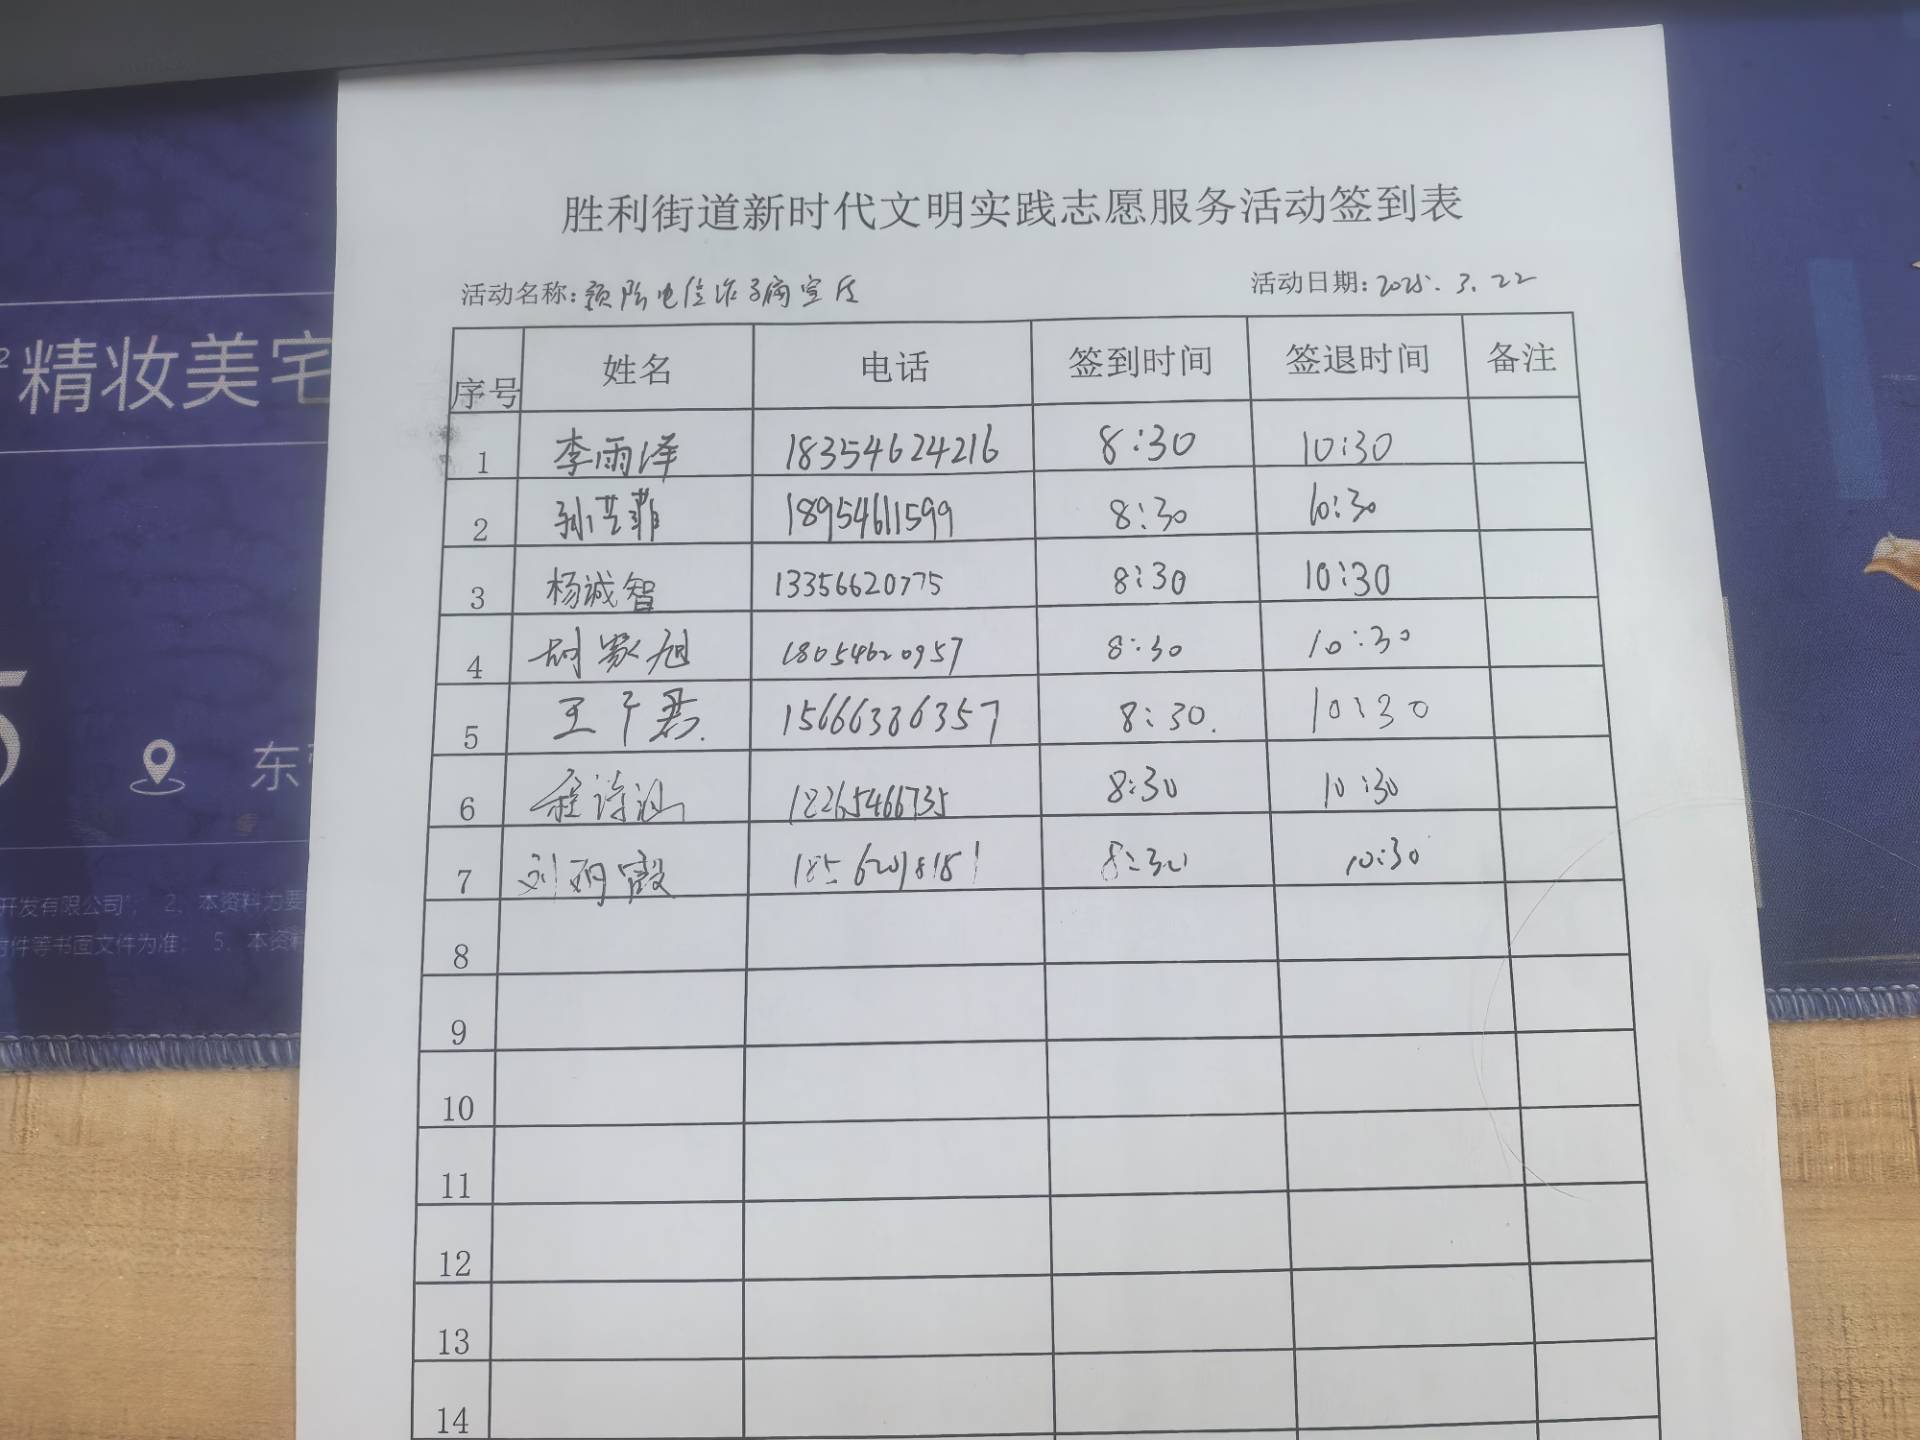 胜利街道新时代文明实践志愿服务活动签到表
活动名称: 预防电信诈骗宣传 活动日期: 2025.3.22
序号 姓名 电话 签到时间 签退时间 备注
1 李雨泽 18354624216 8:30 10:30
2 孙芸菲 18954611599 8:30 10:30
3 杨诚智 13356620775 8:30 10:30
4 胡家旭 18054620957 8:30 10:30
5 王千君 15666386357 8:30. 10:30
6 程诗涵 18265466735 8:30 10:30
7 8:30 10:30
8
9
10
11
12
13
14
精妆美宅
东
开发有限公司"; 2、本资料为要
附件等书面文件为准; 5、本资料